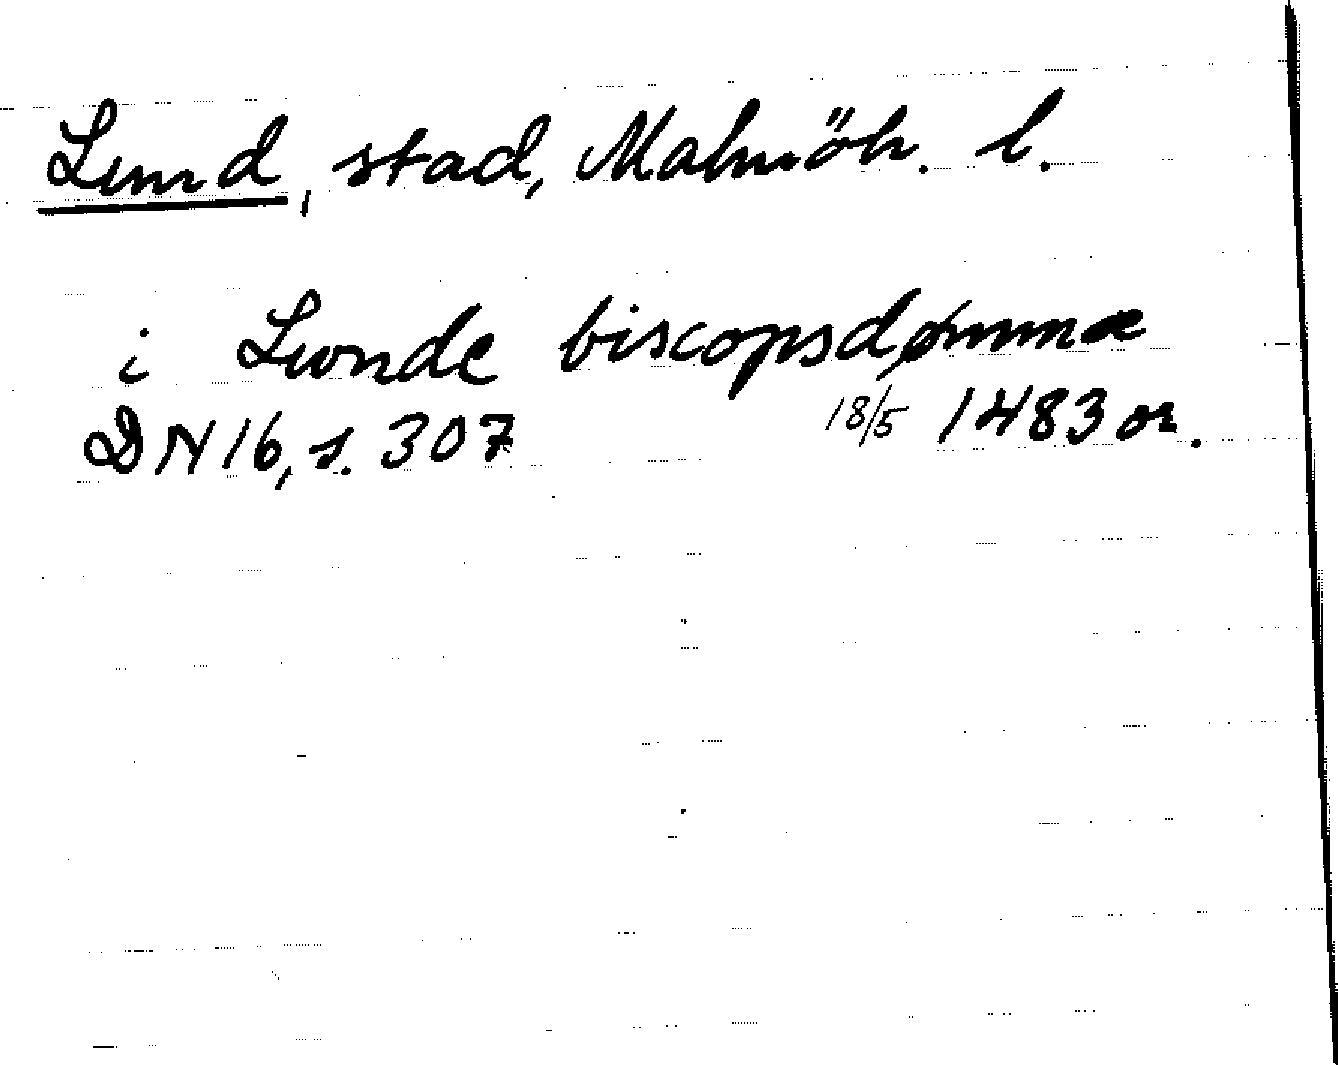 Lund, stad, Malmöh. l.
i Lwnde biscopsdømmæ
DN 16, s. 307 18/5 1483 or.